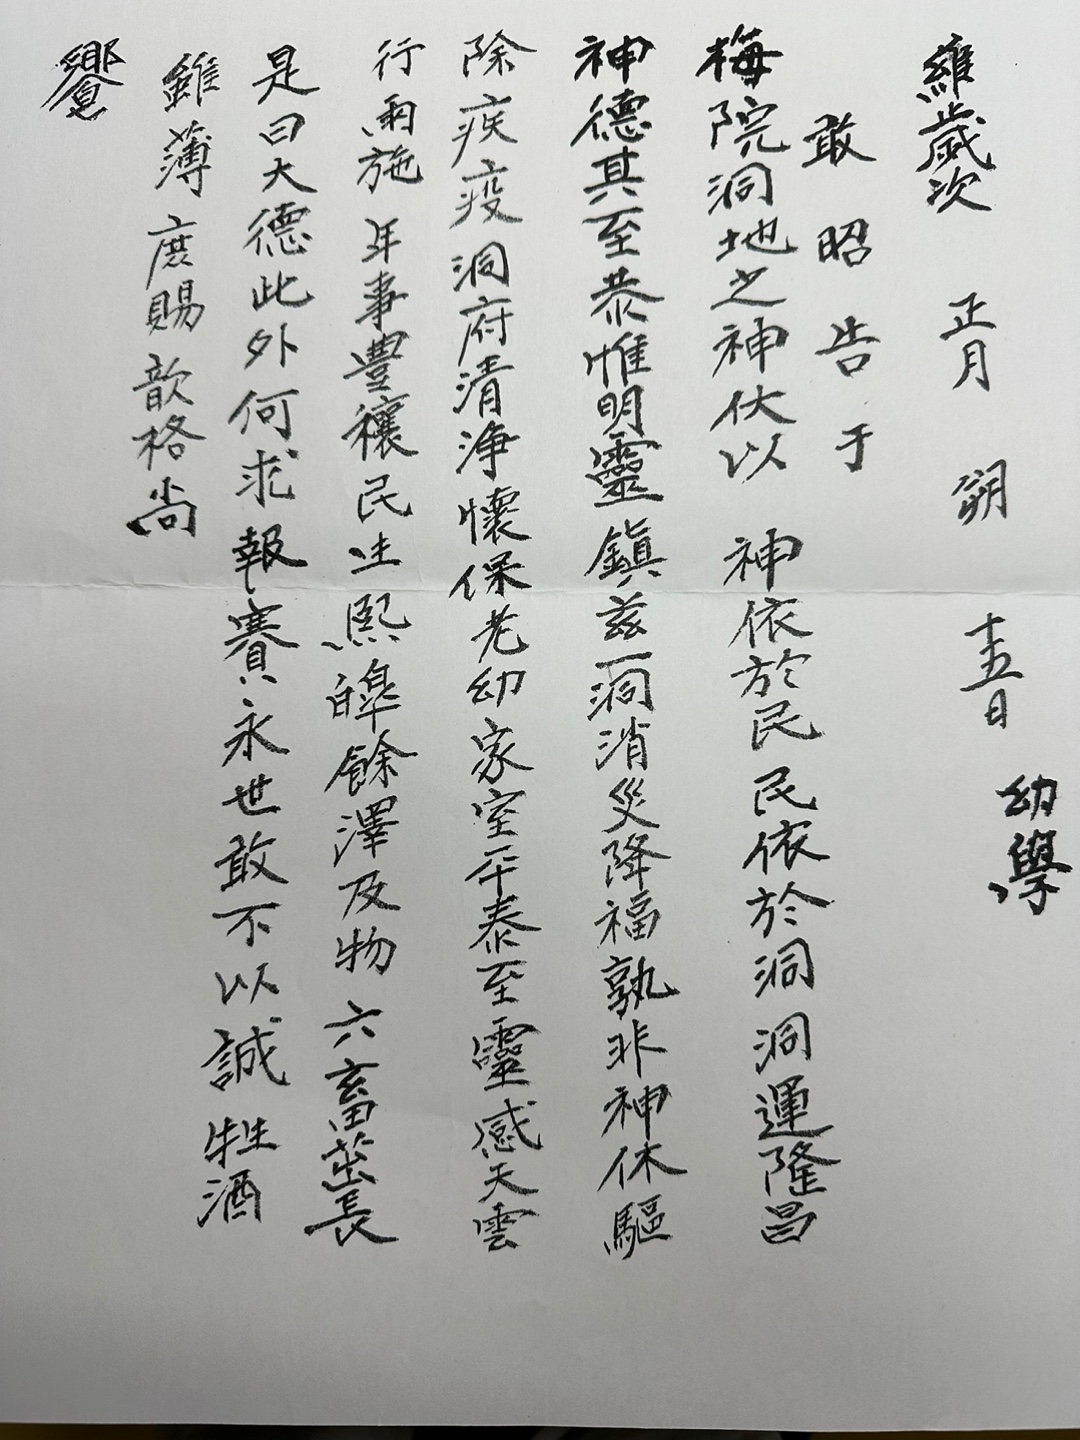 維歲次 正月 朔 十五日 幼學
敢昭告于
梅院洞地之神伏以 神依於民 民依於洞 洞運隆昌
神德其至恭惟明靈 鎭玆一洞消災降福孰非神休驅
除疾疫洞府清淨懷保老幼家室平泰至靈感天雲
行雨施 年事豊穰民生熙皥餘澤及物 六畜茁長
是曰大德此外何求報賽永世敢不以誠 牲酒
雖薄 庶賜歆格尚
饗